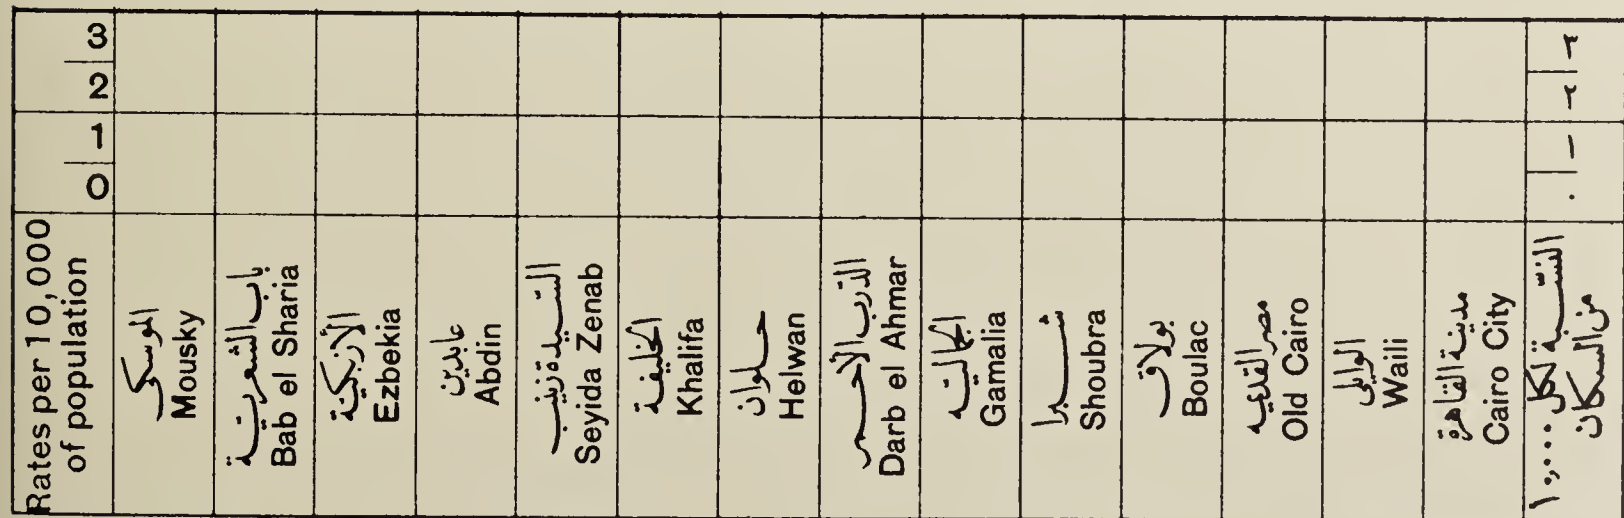 3
2
1
0
Rates per 10,000
of population
الموسكى
Mousky
باب الشعرية
Bab el Sharia
الأزبكية
Ezbekia
عابدين
Abdin
السيدة زينب
Seyida Zenab
الخليفة
Khalifa
حلوان
Helwan
الدرب الأحمر
Darb el Ahmar
الجماليه
Gamalia
شبرا
Shoubra
بولاق
Boulac
مصر القديمه
Old Cairo
الوايلى
Waili
مدينة القاهرة
Cairo City
٣
٢
١
٠
النسبة لكل ١٠,٠٠٠
من السكان